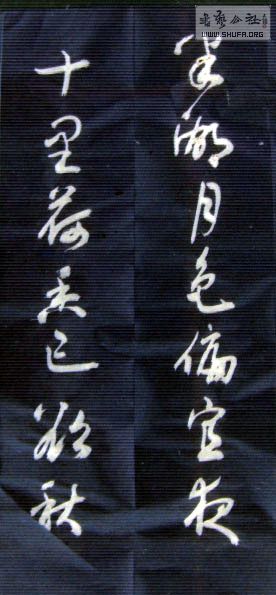 書藝公社
WWW.SHUFA.ORG
半湖月色偏宜夜
十里荷香已欲秋